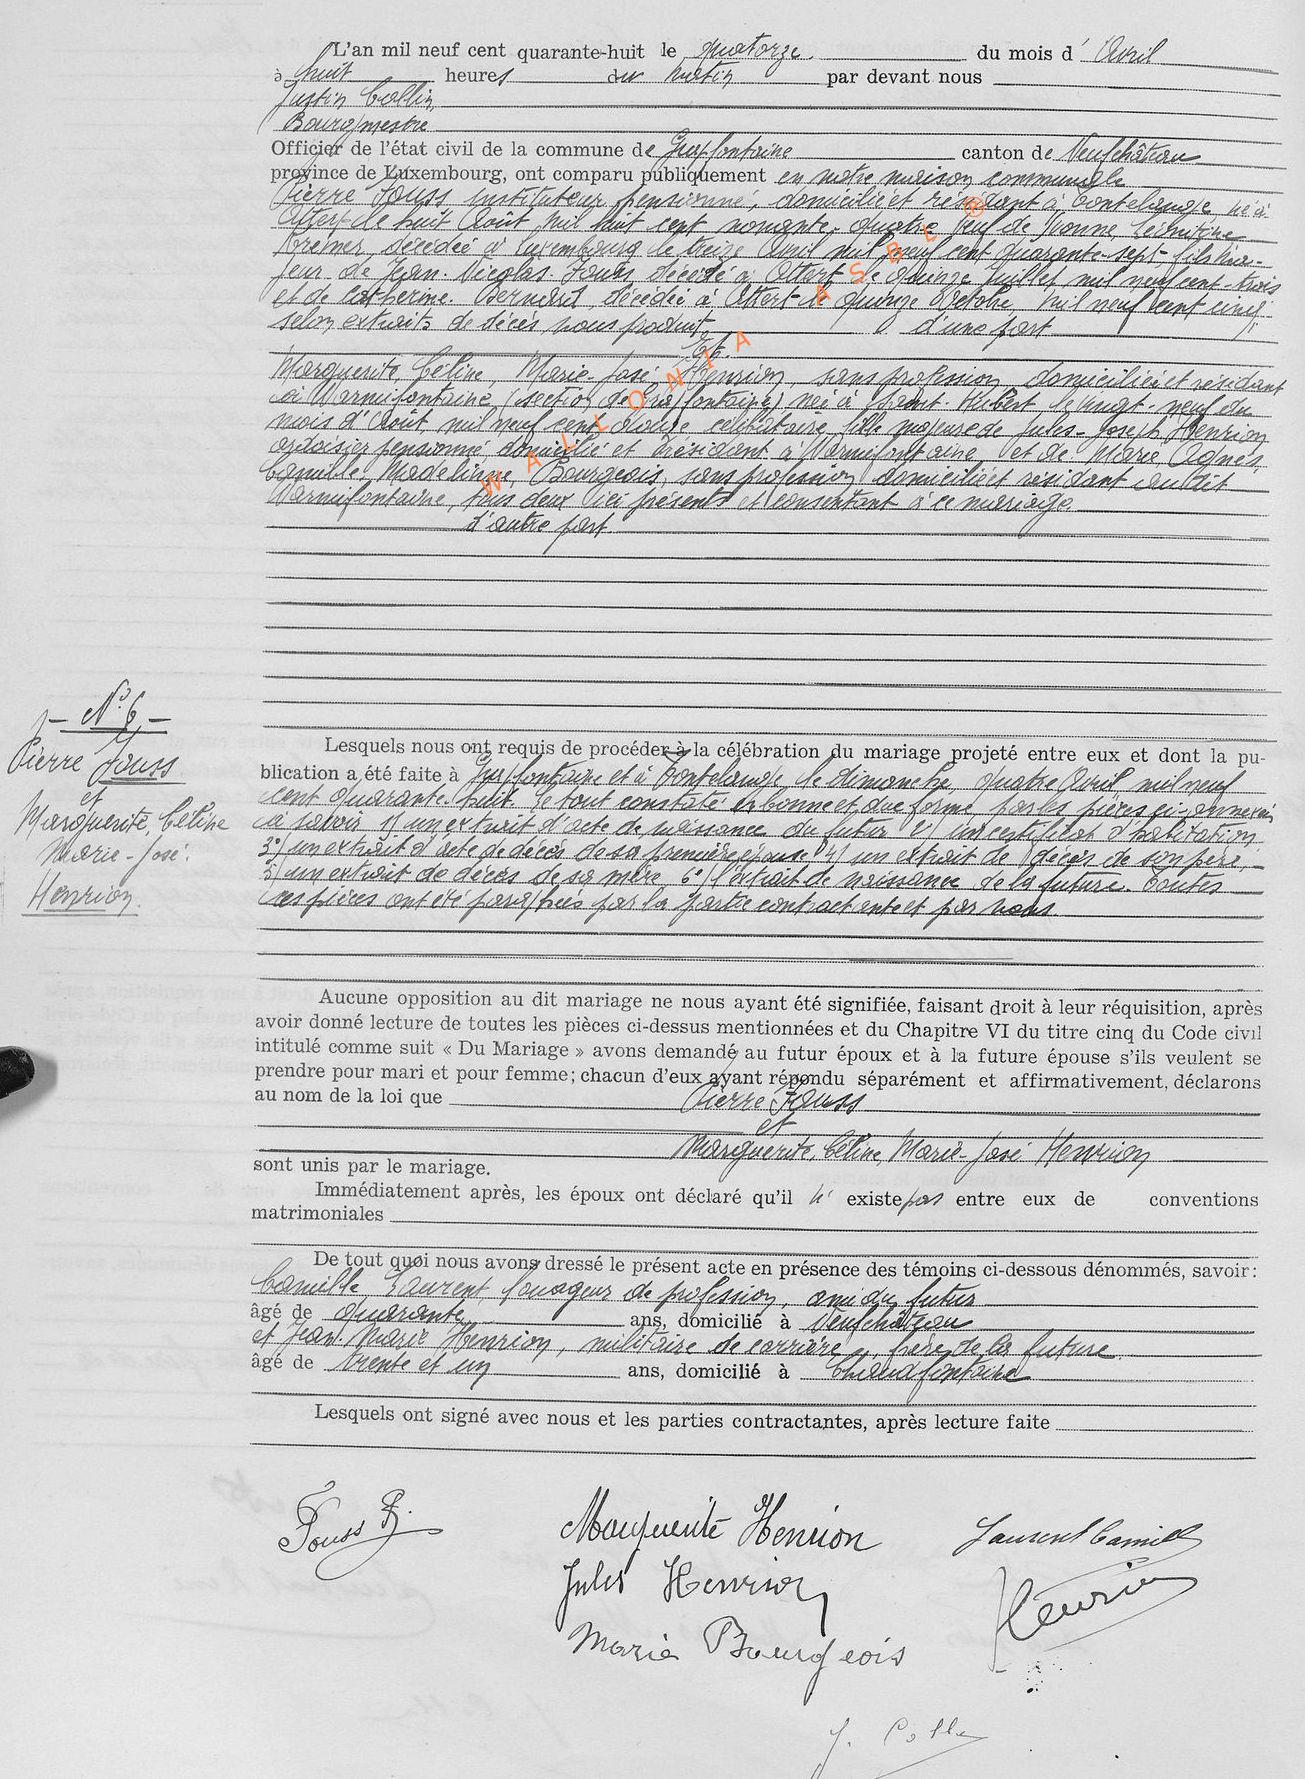 L'an mil neuf cent quarante-huit le quatorze du mois d'Avril
à huit heures du matin par devant nous
Justin Collin
Bourgmestre
Officier de l'état civil de la commune de Grapfontaine canton de Neufchâteau
province de Luxembourg, ont comparu publiquement en notre maison communale
Pierre Fouss instituteur pensionné, domicilié et résidant à Bontelange, né à
Attert le huit Août mil huit cent nonante-quatre veuf de Léontine
décédée à Luxembourg le treize Avril mil neuf cent quarante-sept, fils ma-
jeur de Jean-Nicolas Fouss décédé à Attert le quinze Juillet mil neuf cent-trois
et de Catherine Bernard décédée à Attert le quinze Octobre mil neuf cent cinq
selon extraits de décès nous produit, d'une part
Et
Marguerite, Céline, Marie-José Henrion, sans profession domiciliée et résidant
à Warmifontaine, (section de Grapfontaine) née à Saint-Hubert le vingt-neuf du
mois d'Août mil neuf cent douze célibataire, fille majeure de Jules-Joseph Henrion
ardoisier pensionné domicilié et résidant à Warmifontaine, et de Marie, Agnès
Camille, Madeleine, Bourgeois, sans profession domiciliée et résidant au dit
Warmifontaine, tous deux ici présents et consentant à ce mariage.
d'autre part.
N° 6
Pierre Fouss
et
Marguerite, Céline
Marie-José.
Henrion.
Lesquels nous ont requis de procéder à la célébration du mariage projeté entre eux et dont la pu-
blication a été faite à Grapfontaine et à Bontelange, le dimanche, quatre Avril, mil neuf
cent quarante-huit. Le tout constaté en bonne et due forme, par les pièces ci-annexées
à savoir 1) un extrait d'acte de naissance du futur 2) un certificat d'habitation
3°) un extrait d'acte de décès de sa première épouse 4) un extrait de décès de son père,
5) un extrait de décès de sa mère 6°) l'extrait de naissance de la future. Toutes
ces pièces ont été paraphées par la partie contractante et par nous.
Aucune opposition au dit mariage ne nous ayant été signifiée, faisant droit à leur réquisition, après
avoir donné lecture de toutes les pièces ci-dessus mentionnées et du Chapitre VI du titre cinq du Code civil
intitulé comme suit « Du Mariage » avons demandé au futur époux et à la future épouse s'ils veulent se
prendre pour mari et pour femme; chacun d'eux ayant répondu séparément et affirmativement, déclarons
au nom de la loi que Pierre Fouss
et
Marguerite, Céline, Marie-José Henrion
sont unis par le mariage.
Immédiatement après, les époux ont déclaré qu'il n'existe pas entre eux de conventions
matrimoniales
De tout quoi nous avons dressé le présent acte en présence des témoins ci-dessous dénommés, savoir:
Camille, Laurent, louageur de profession, ami du futur
âgé de quarante ans, domicilié à Neufchâteau
et Jean-Marie Henrion, militaire de carrière, frère de la future
âgé de trente et un ans, domicilié à Chaudfontaine
Lesquels ont signé avec nous et les parties contractantes, après lecture faite
Fouss P.
Marguerite Henrion
Laurent Camille
Jules Henrion
Henrion
Marie Bourgeois
J. Collin
WALLONIA ASBL ®